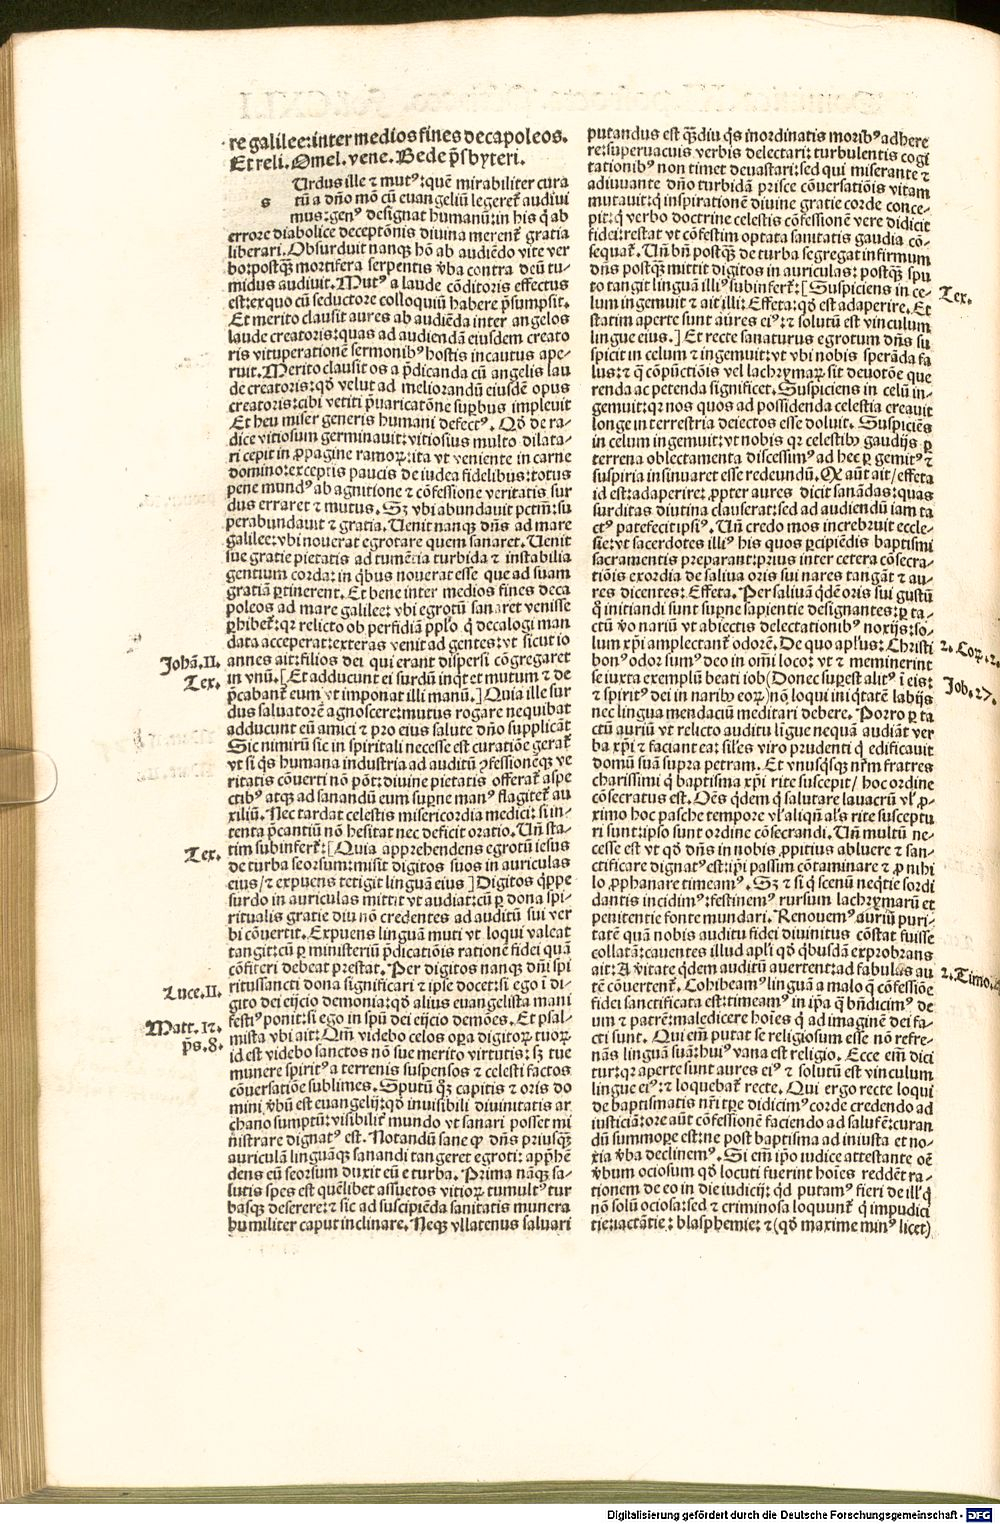 re galilee:inter medios fines decapoleos.
Et reli. Omel. vene. Bede p̃sbyteri.
s Urdus ille ⁊ mutꝰ:quẽ mirabiliter cura
tũ a dño mõ cũ euangeliũ legeret̃ audiui
mus:genꝰ designat humanũ:in his q̃ ab
errore diabolice deceptõnis diuina merent̃ gratia
liberari. Obsurduit nanq̢ hõ ab audiẽdo vite ver
bo:postq̃ꝫ mortifera serpentis ṽba contra deũ tu-
midus audiuit. Mutꝰ a laude cõditoris effectus
est:ex quo cũ seductore colloquiũ habere p̃sumpsit.
Et merito clausit aures ab audiẽda inter angelos
laude creatoris:quas ad audiendã eiusdem creato
ris vituperationẽ sermonibꝰ hostis incautus ape-
ruit. Merito clausit os a p̃dicanda cũ angelis lau
de creatoris:qõ velut ad meliorandũ eiusdẽ opus
creatoris:cibi vetiti p̃uaricatõne suꝑbus impleuit
Et heu miser generis humani defectꝰ. Qõ de ra-
dice vitiosum germinauit:vitiosius multo dilata-
ri cepit in ꝓpagine ramoꝝ:ita vt veniente in carne
domino:exceptis paucis de iudea fidelibus:totus
pene mundꝰ ab agnitione ⁊ cõfessione veritatis sur
dus erraret ⁊ mutus. Sꝫ vbi abundauit pctm̃:su
perabundauit ⁊ gratia. Uenit nanq̢ dñs ad mare
galilee:vbi nouerat egrotare quem sanaret. Uenit
sue gratie pietatis ad tumẽtia turbida ⁊ instabilia
gentium corda:in q̃bus nouerat esse que ad suam
gratiã ꝑtinerent. Et bene inter medios fines deca
poleos ad mare galilee: vbi egrotũ sanaret venisse
ꝑhibet̃:qꝛ relicto ob perfidiã ppl̃o q̃ decalogi man
data acceperat:exteras venit ad gentes:vt sicut io
Johã.II. annes ait:filios dei qui erant dispersi cõgregaret
Tex. in vnũ. [Et adducunt ei surdũ inq̃t et mutum ⁊ de
p̃cabant̃ eum vt imponat illi manũ.] Quia ille sur
dus saluatorẽ agnoscere:mutus rogare nequibat
adducunt eũ amici ⁊ pro eius salute dño supplicãt
Sic nimirũ sic in spiritali necesse est curatiõe gerat̃
vt si q̃s humana industria ad auditũ ꝯfessionẽq̢ ve
ritatis cõuerti nõ põt:diuine pietatis offerat̃ aspe
ctibꝰ atq̢ ad sanandũ eum suꝑne manꝰ flagitet̃ au
xiliũ. Nec tardat celestis misericordia medici: si in-
tenta p̃cantiũ nõ hesitat nec deficit oratio. Uñ sta-
Tex. tim subinfert̃:[Quia apprehendens egrotũ iesus
de turba seorsum:misit digitos suos in auriculas
eius/⁊ expuens tetigit linguã eius] Digitos q̃ppe
surdo in auriculas mittit vt audiat:cũ ꝑ dona spi-
ritualis gratie diu nõ credentes ad auditũ sui ver
bi cõuertit. Expuens linguã muti vt loqui valeat
tangit:cũ ꝑ ministeriũ p̃dicatiõis rationẽ fidei quã
cõfiteri debeat prestat. Per digitos nanq̢ dñi spi
ritussancti dona significari ⁊ ipse docet:si ego ĩ di-
Luce.II. gito dei eijcio demonia:qõ alius euangelista mani
festiꝰ ponit:si ego in spũ dei eijcio demões. Et psal-
Matt.12. mista vbi ait: Qm̃ videbo celos oꝑa digitoꝝ tuoꝝ.
p̃s.8. id est videbo sanctos nõ sue merito virtutis: sꝫ tue
munere spiritꝰ a terrenis suspensos ⁊ celesti factos
cõuersatiõe sublimes. Sputũ q̃ꝫ capitis ⁊ oris do
mini ṽbũ est euangelij:qõ inuisibili diuinitatis ar
chano sumptũ:visibilit̃ mundo vt sanari posset mi
nistrare dignatꝰ est. Notandũ sane ꝙ dñs priusq̃ꝫ
auriculã linguãq̢ sanandi tangeret egroti: appr̃hẽ
dens eũ seorsum duxit eũ e turba. Prima nãq̢ sa-
lutis spes est quẽlibet assuetos vitioꝝ tumultꝰ tur
basq̢ deserere:⁊ sic ad suscipiẽda sanitatis munera
humiliter caput inclinare. Neq̢ vllatenus saluari
putandus est q̃ꝫdiu q̃s inordinatis moribꝰ adhere
re:superuacuis verbis delectari:turbulentis cogi
tationibꝰ non timet deuastari:sed qui miserante ⁊
adiuuante dño turbidã prisce cõuersatiõis vitam
mutauit:q̃ inspirationẽ diuine gratie corde conce-
pit:q̃ verbo doctrine celestis cõfessionẽ vere didicit
fidei:restat vt cõfestim optata sanitatis gaudia cõ-
sequat̃. Uñ bñ postq̃ꝫ de turba segregat infirmum
dñs postq̃ꝫ mittit digitos in auriculas: postq̃ꝫ spu
to tangit linguã illiꝰ subinfert̃:[Suspiciens in ce- Tex.
lum ingemuit ⁊ ait illi: Effeta:qõ est adaperire. Et
statim aperte sunt aures eiꝰ:⁊ solutũ est vinculum
lingue eius.] Et recte sanaturus egrotum dñs su
spicit in celum ⁊ ingemuit:vt vbi nobis sperãda sa
lus:⁊ q̃ cõpũctiõis vel lachrymaꝝ sit deuotõe que
renda ac petenda significet. Suspiciens in celũ in-
gemuit:qꝛ nos quos ad possidenda celestia creauit
longe in terrestria deiectos esse doluit. Suspiciẽs
in celum ingemuit:vt nobis qꝛ celestibꝫ gaudijs ꝑ
terrena oblectamenta discessimꝰ ad hec ꝑ gemitꝰ ⁊
suspiria insinuaret esse redeundũ. Qõ aũt ait/effeta
id est:adaperire: ꝓpter aures dicit sanãdas:quas
surditas diutina clauserat:sed ad audiendũ iam ta
ctꝰ patefecit ipsiꝰ. Uñ credo mos increbruit eccle-
sie:vt sacerdotes illiꝰ his quos ꝑcipiẽdis baptismi
sacramentis preparant:prius inter cetera cõsecra-
tiõis exordia de saliua oris sui nares tangãt ⁊ au-
res dicentes: Effeta. Per saliuã q̃dẽ oris sui gustũ
q̃ initiandi sunt suꝑne sapientie designantes:ꝑ ta-
ctũ ṽo nariũ vt abiectis delectationibꝰ noxijs:so-
lum xp̃i amplectant̃ odorẽ. De quo apl̃us: Christi 2.Coꝝ.2.
bonꝰ odor sumꝰ deo in om̃i loco: vt ⁊ meminerint
se iuxta exemplũ beati iob (Donec suꝑest alitꝰ ĩ eis: Job.27.
⁊ spiritꝰ dei in naribꝫ eoꝝ) nõ loqui iniq̃tatẽ labijs
nec lingua mendaciũ meditari debere. Porro ꝑ ta
ctũ auriũ vt relicto auditu lĩgue nequã audiãt ver
ba xp̃i ⁊ faciant ea: sil̃es viro prudenti q̃ edificauit
domũ suã supra petram. Et vnusq̃sq̢ nr̃m fratres
charissimi q̃ baptisma xp̃i rite suscepit/ hoc ordine
cõsecratus est. Oẽs q̃dem q̃ salutare lauacrũ vl̃ ꝓ-
ximo hoc pasche tempore vl̃ aliq̃ñ al̃s rite susceptu
ri sunt:ipso sunt ordine cõsecrandi. Uñ multũ ne-
cesse est vt qõ dñs in nobis ꝓpitius abluere ⁊ san-
ctificare dignatꝰ est:ip̃i passim cõtaminare ⁊ ꝓ nihi
lo ꝓphanare timeamꝰ. Sꝫ ⁊ si q̃ scenũ neq̃tie sordi
dantis incidimꝰ:festinemꝰ rursum lachrymarũ et
penitentie fonte mundari. Renouemꝰ auriũ puri-
tatẽ quã nobis auditu fidei diuinitus cõstat fuisse
collatã:cauentes illud apl̃i qõ q̃busdã exprobrans
ait: A ṽitate q̃dem auditũ auertent:ad fabulas au 2.Timo.4
tẽ cõuertent̃. Cohibeamꝰ linguã a malo q̃ cõfessiõe
fidei sanctificata est:timeamꝰ in ip̃a q̃ bñdicimꝰ de
um ⁊ patrẽ:maledicere hoĩes q̃ ad imaginẽ dei fa-
cti sunt. Qui em̃ putat se religiosum esse nõ refre-
nãs linguã suã:huiꝰ vana est religio. Ecce em̃ dici
tur:qꝛ aperte sunt aures eiꝰ ⁊ solutũ est vinculum
lingue eiꝰ:⁊ loquebat̃ recte. Qui ergo recte loqui
de baptismatis nr̃i tꝑe didicimꝰ corde credendo ad
iusticiã:ore aũt cõfessionẽ faciendo ad salutẽ:curan
dũ summoꝑe est:ne post baptisma ad iniusta et no-
xia ṽba declinemꝰ. Si em̃ ip̃o iudice attestante oẽ
ṽbum ociosum qõ locuti fuerint hoĩes reddẽt ra-
tionem de eo in die iudicij: q̃d putamꝰ fieri de ill̃ q̃
nõ solũ ociosa:sed ⁊ criminosa loquunt̃ q̃ impudici
tie:iactãtie: blasphemie: ⁊ (qõ maxime minꝰ licet)
Digitalisierung gefördert durch die Deutsche Forschungsgemeinschaft - DFG